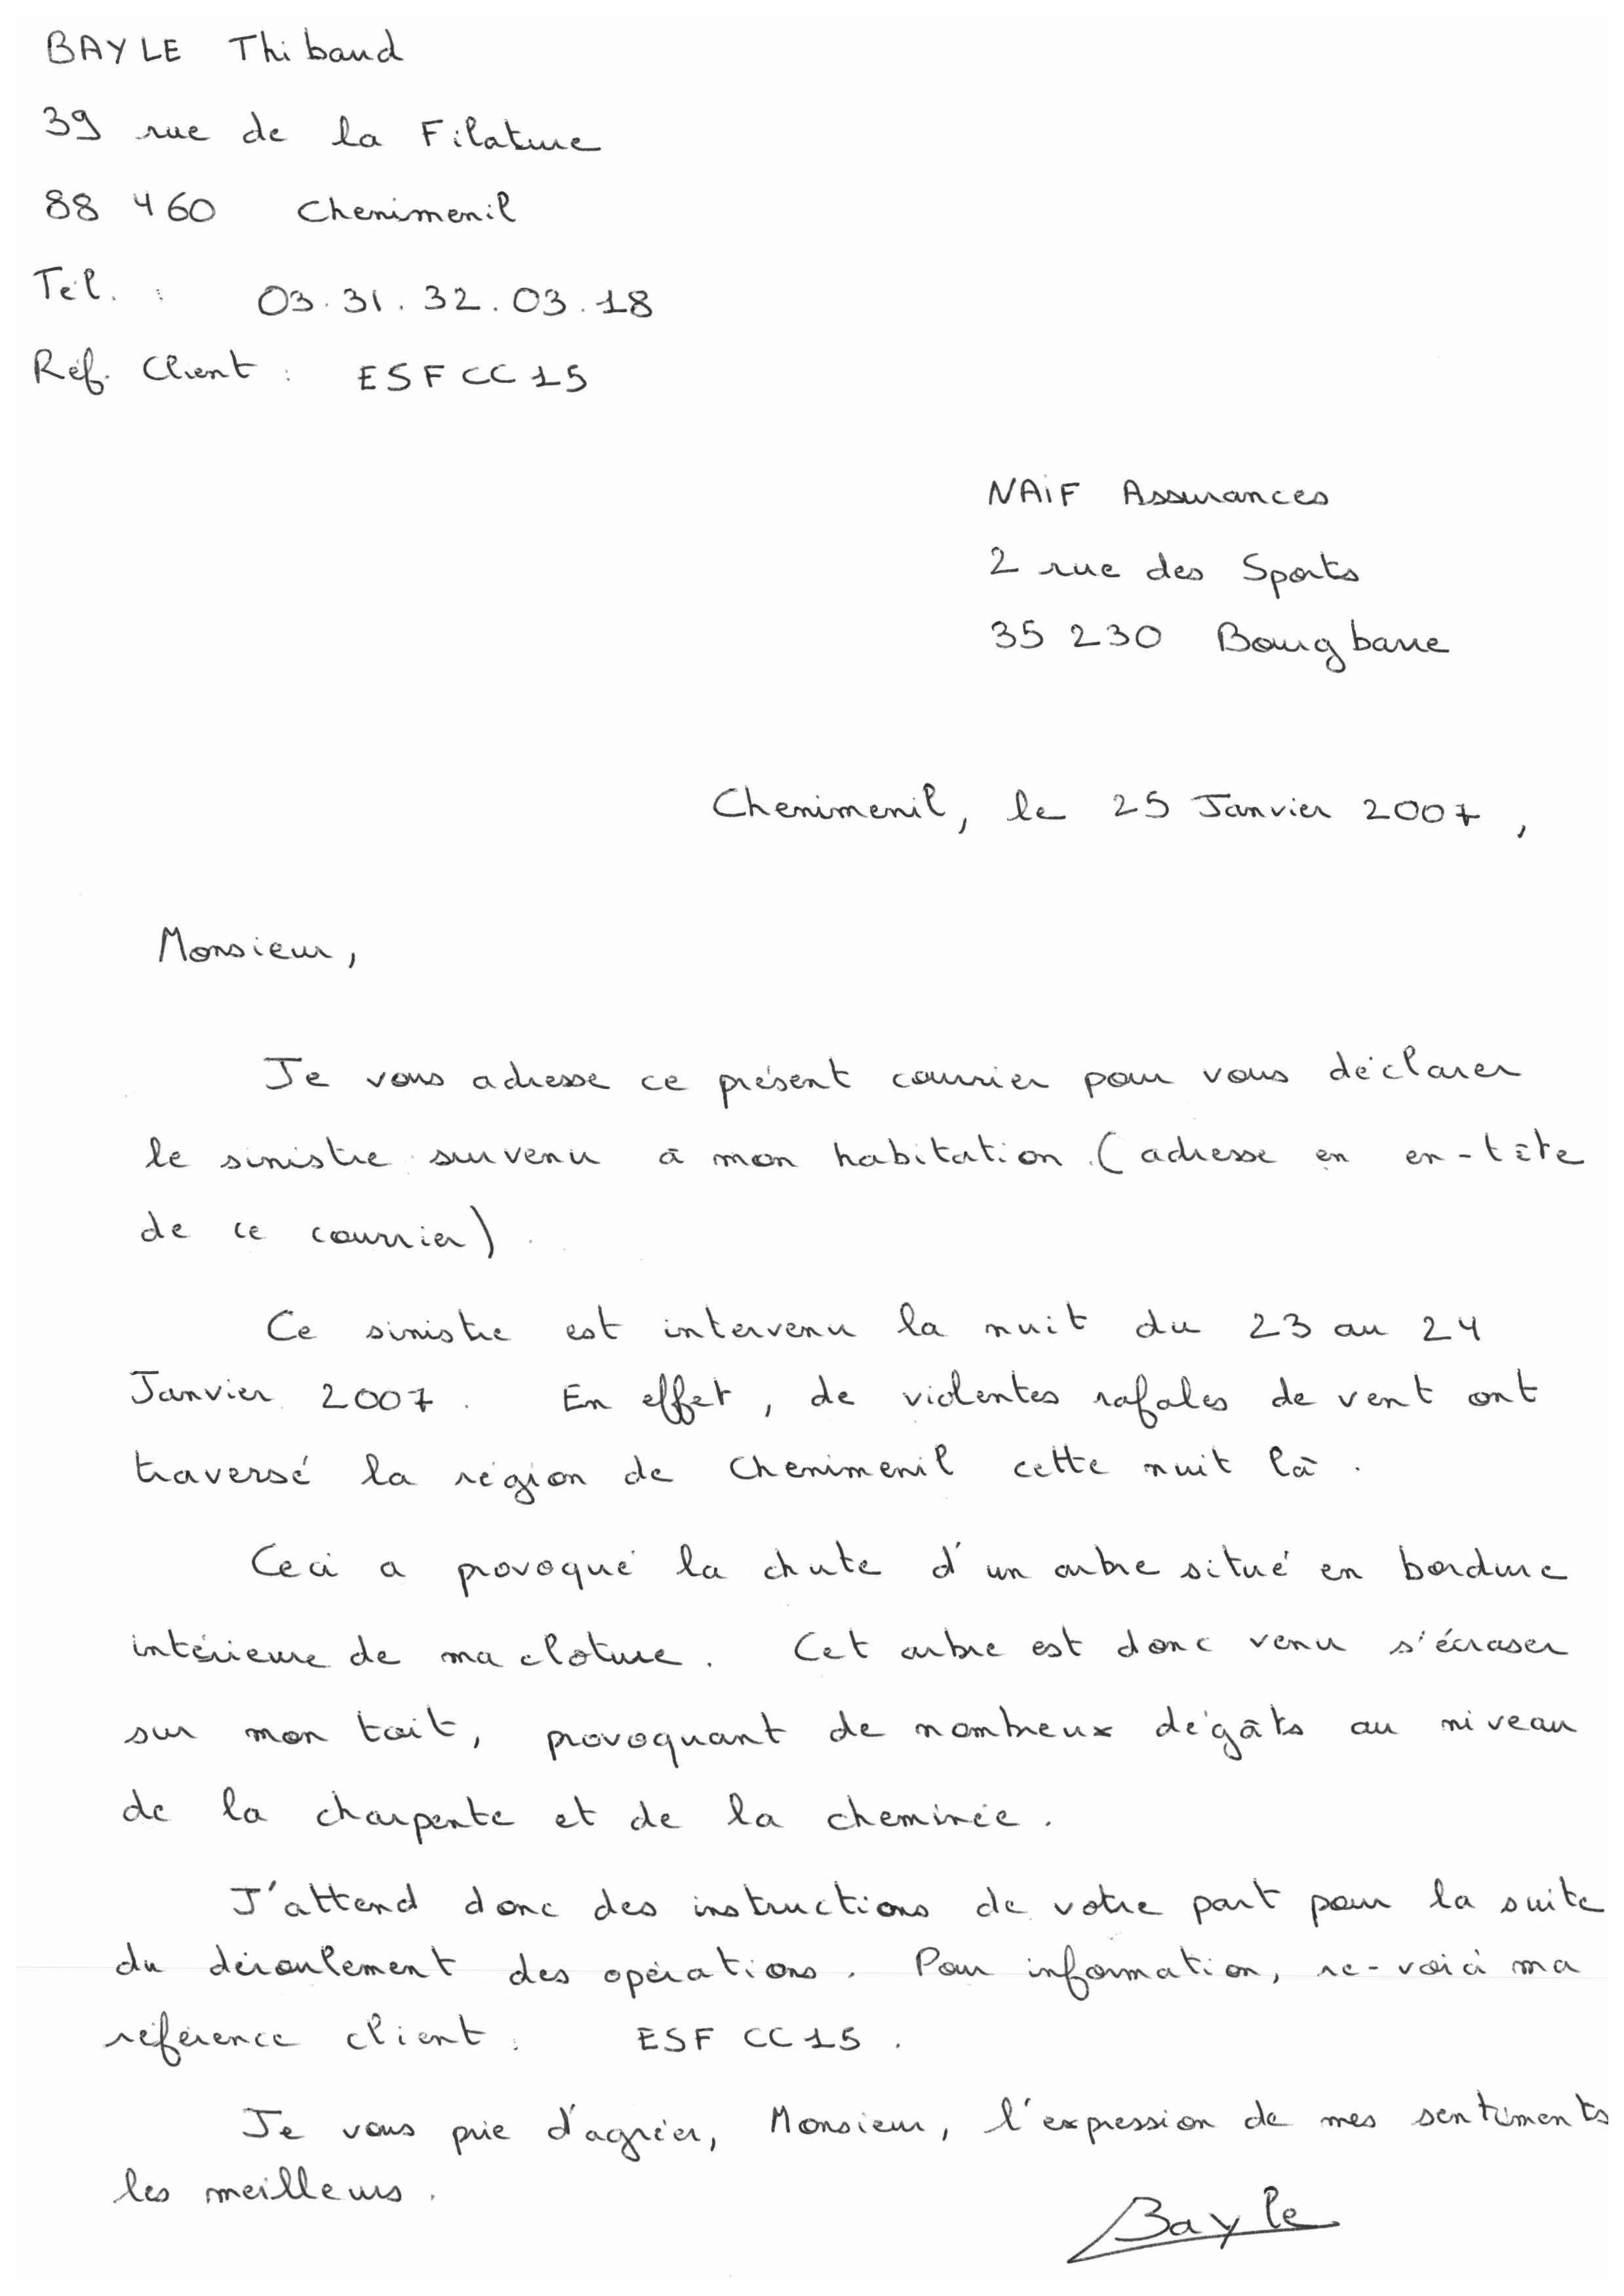 BAYLE Thibaud
39 rue de la Filature
88 460 Chenimenil
Tél. : 03.31.32.03.18
Réf. Client : ESFCC15
NAIF Assurances
2 rue des Sports
35 230 Bourgbarre
Chenimenil, le 25 Janvier 2007,
Monsieur,
Je vous adresse ce présent courrier pour vous déclarer
le sinistre survenu à mon habitation (adresse en en-tête
de ce courrier).
Ce sinistre est intervenu la nuit du 23 au 24
Janvier 2007. En effet, de violentes rafales de vent ont
traversé la région de Chenimenil cette nuit là.
Ceci a provoqué la chute d'un arbre situé en bordure
intérieure de ma cloture. Cet arbre est donc venu s'écraser
sur mon toit, provoquant de nombreux dégâts au niveau
de la charpente et de la cheminée.
J'attend donc des instructions de votre part pour la suite
du déroulement des opérations. Pour information, re-voici ma
référence client : ESF CC15.
Je vous prie d'agréer, Monsieur, l'expression de mes sentiments
les meilleurs.
Bayle